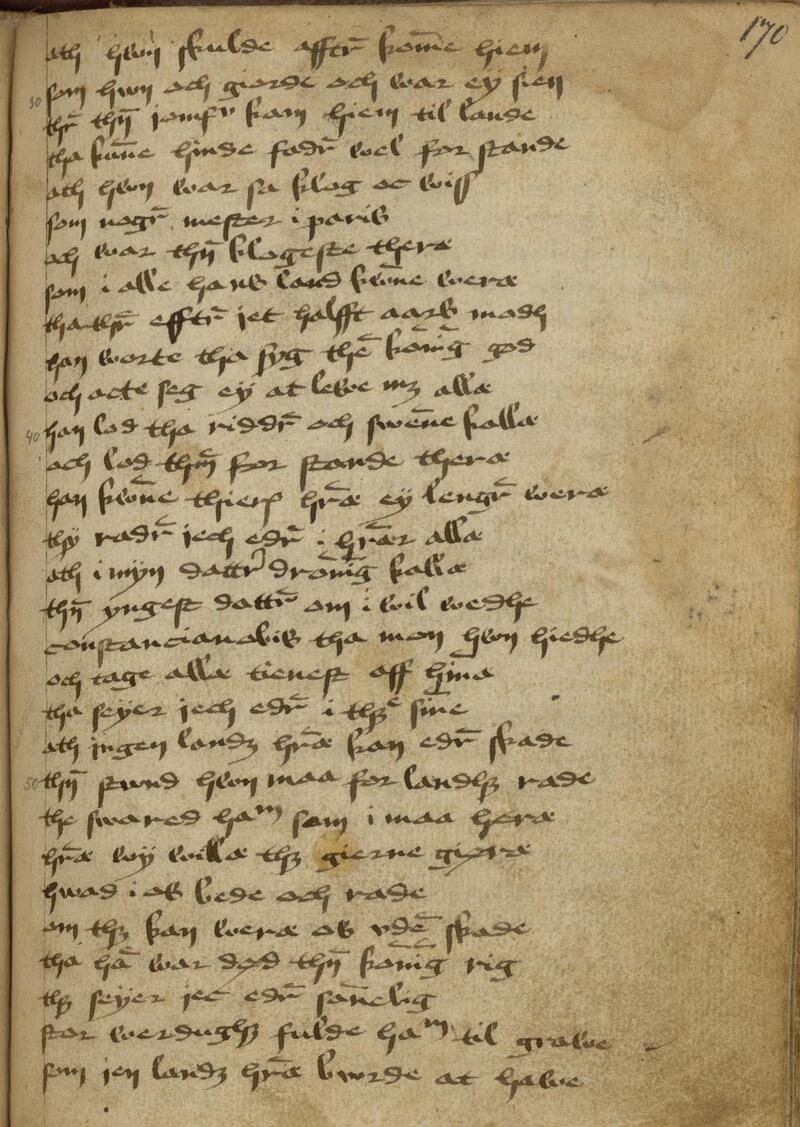 170
ath hwn skulde afftr̄ kom̄e hiem
som hwn och giorde och war ey sien
30 thr̄ thn̄ jomfrv kam hiem til lande
tha kun̄e hinde fadr̄ wel for stande
ath hwn war sa klog oc wiss
som nogr̄ mester i paris
och war thn̄ klogeste theræ
som i alle hans land kwn̄e weræ
tha thr̄ efftr̄ jet halfft aars madh
han worte tha syg thē kon̄ig god
och acte seg ey at lewe mz allæ
40 han lod tha riddr̄ och swen̄e kallæ
och lod thm̄ for stande theræ
han kwn̄e thiers hr̄æ ey lengr̄ weræ
thy radr̄ jech edr̄ i hr̄ær allæ
ath i myn dattr̄ dron̄ig kallæ
thn̄ yngest dattr̄ om i wil wedhe
constancianobis tha mon hwn hiedhe
och tage allæ tienest off hinæ
tha seyer jech edr̄ i thze sin̄e
ath jngen landz hr̄æ kan edr̄ skade
50 thn̄ stund hwn maa for landhz rade
the swared ham som i maa heræ
hr̄æ wy willæ thz gierne gieræ
hwad i os bede och rade
om thz kan weræ os vdē skade
tha hā war død thn̄ kon̄ig rig
thz seyer jec edr̄ san̄elig
stor werdughz fulde ham til grawe
som jen landz hr̄æ bwrde at hawe